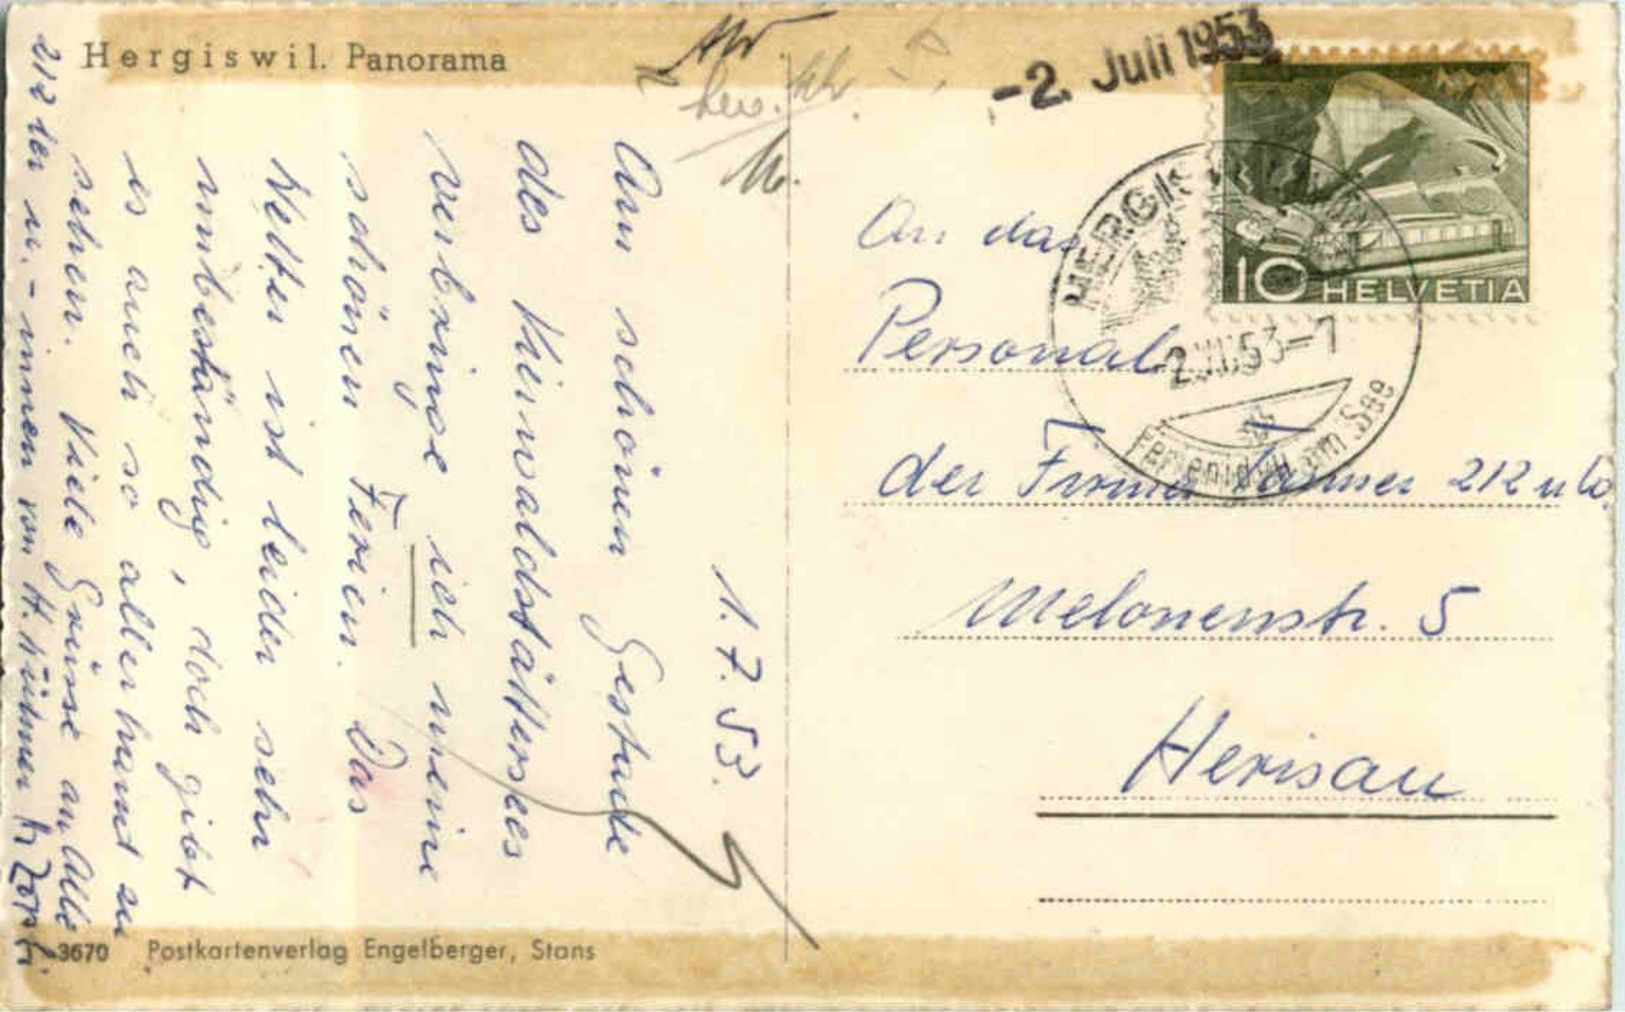 Hergiswil. Panorama
1.7.53.
Am schönen Gestade
des Vierwaldstättersees
verbringe ich meine
schönen Ferien. Das
Wetter ist leider sehr
unbeständig, doch gibt
es auch so allerhand zu
sehen. Viele Grüsse an Alle
212 ter u. - innen von H.
3670 Postkartenverlag Engelberger, Stans
-2. Juli 1953
10 HELVETIA
HERGIS
2.VII.53-7
Ferienidyll am See
An das
Personal
der Firma Tanner 212 u Co
Melonenstr. 5
Herisau